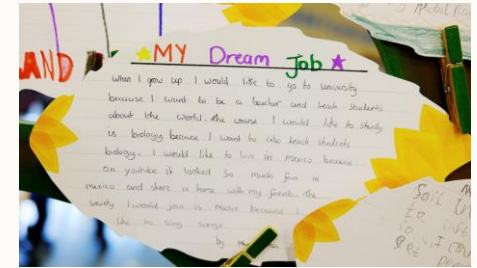 MY Dream Job
When I grow up I would like to go to university
because I want to be a teacher and teach students
about the world. the course I would like to study
is biology because I want to also teach students
biology. I would like to live in Mexico because
on youtube it looked so much fun in
mexico and share a home with my friends. the
society I would join is music because I
like to sing songs.
by
AND